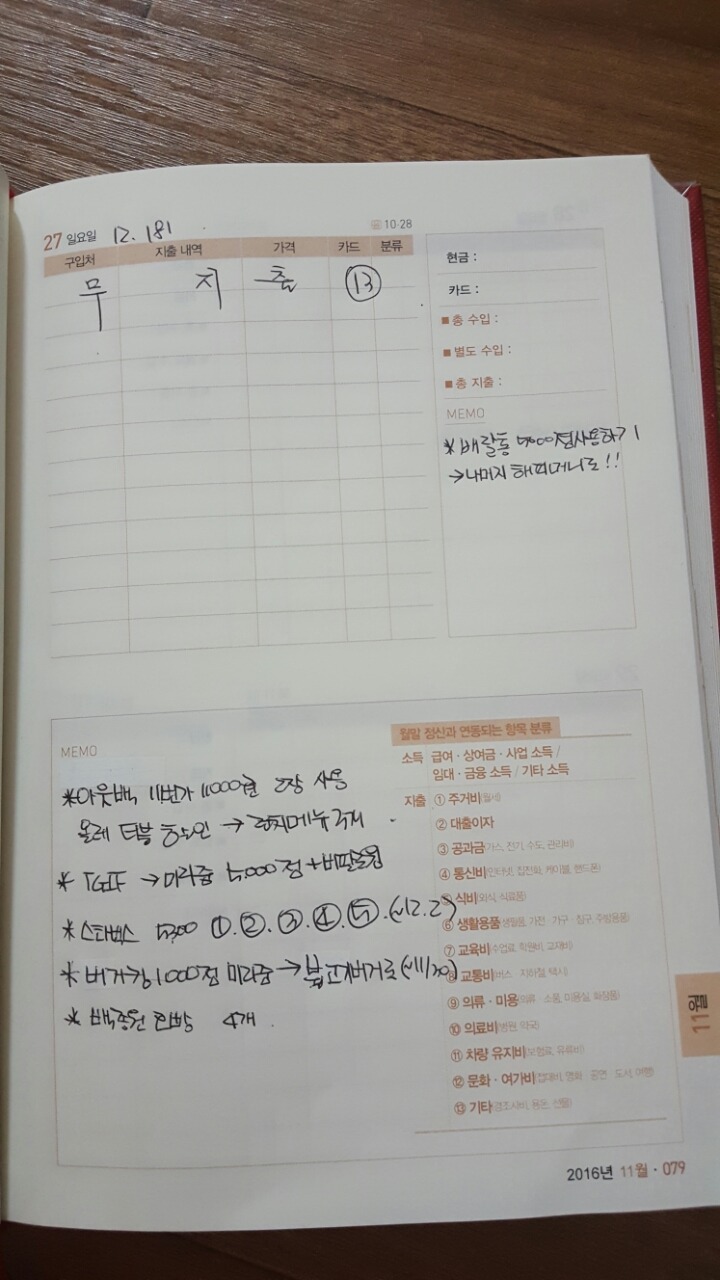 27 일요일 12.181 10·28
구입처 지출 내역 가격 카드 분류
무 지 출 ⑬
현금 :
카드 :
■ 총 수입 :
■ 별도 수입 :
■ 총 지출 :
MEMO
*배달통 5000점사용하기
→나머지 해피머니로!!
MEMO
*아웃백 11번가 11000원 2장 사용
올레 더블 할인 → 런치메뉴
* TGIF → 미라클 5,000점 +
*스타벅스 5300 ①.②.③.④.⑤.(~12.2)
*버거킹 1000점 미라클 → 불고기버거로 (~11/30)
*백종원 한방 4개
월말 정산과 연동되는 항목 분류
소득 급여 · 상여금 · 사업 소득 /
임대 · 금융 소득 / 기타 소득
지출 ① 주거비(월세)
② 대출이자
③ 공과금(가스, 전기, 수도, 관리비)
④ 통신비(인터넷, 집전화, 케이블, 핸드폰)
⑤ 식비(외식, 식료품)
⑥ 생활용품(생필품, 가전 · 가구 · 침구, 주방용품)
⑦ 교육비(수업료, 학원비, 교재비)
⑧ 교통비(버스 · 지하철, 택시)
⑨ 의류 · 미용(의류 · 소품, 미용실, 화장품)
⑩ 의료비(병원, 약국)
⑪ 차량 유지비(보험료, 유류비)
⑫ 문화 · 여가비(접대비, 영화 · 공연 · 도서, 여행)
⑬ 기타(경조사비, 용돈, 선물)
11월
2016년 11월 · 079